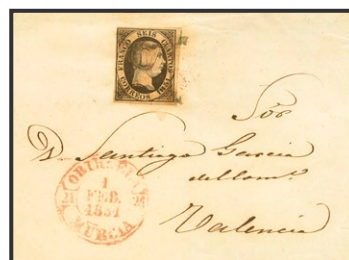 FRANCO SEIS CUARTOS
CORREOS 1851
Sór
D. Santiago Garcia
del Com.º
Valencia
1
FEB.
1851
MURCIA